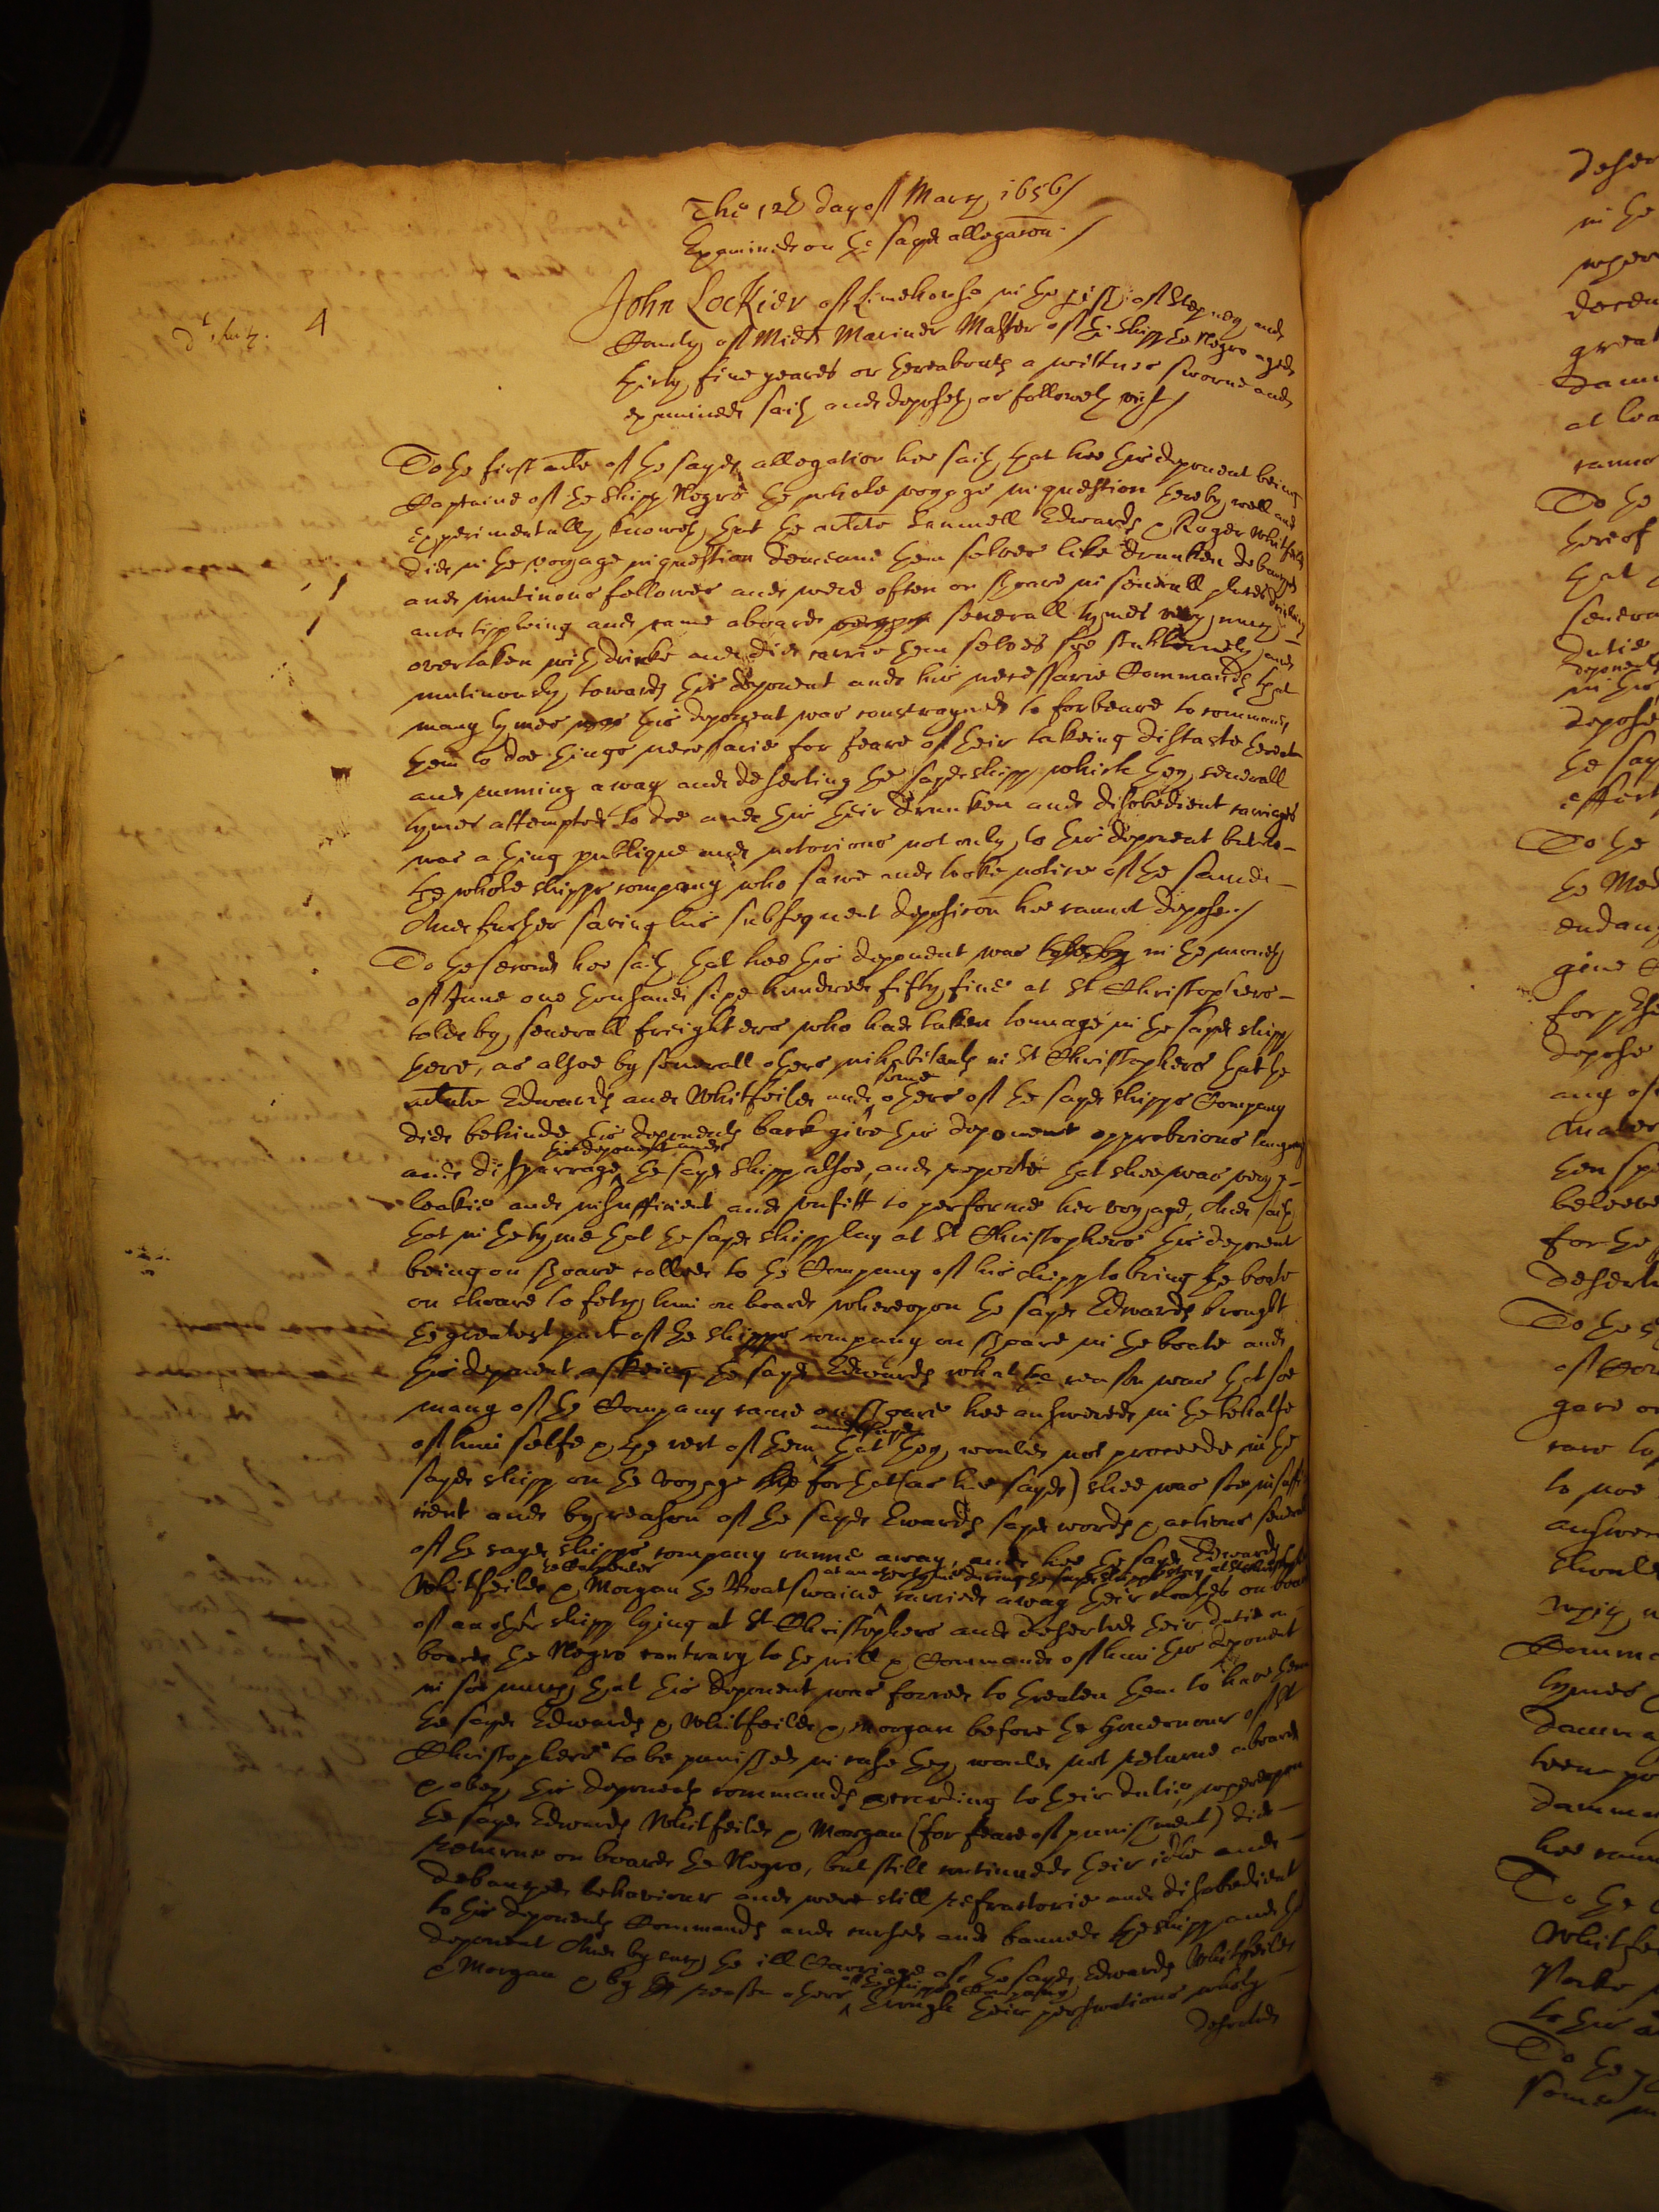 The 12th day of March 1656/
Examined on the sayd allegacon./
4
John Lockier of Limehouse in the pish of Stepney and
County of Midds Mariner Master of the shipp the Negro aged
thirty five yeares or thereabouts a wittnes sworne and
examined saith and deposeth as followeth vizt/
To the first arle of the sayd allegation hee saith that hee this deponent being
Captaine of the shipp Negro the whole voyage in question thereby well and
experimentally knoweth that the arlate Lemuell Edwards & Roger Whitfeild
did in the voyage in question demeane them selves like drunken debauched
and mutinous fellowes and were often on shoare in severall places drinking
and tippleing and came aboard severall tymes very much
overtaken with drinke and did carrie them selves soe stubbornely and
mutinously towards this deponent and his necessarie Commands that
many tymes this deponent was constrayned to forbeare to command
them to doe things necessarie for feare of their takeing distaste thereat
and running away and deserting the sayd shipp which they severall
tymes attempted to doe and this their drunken and disobedient carriages
was a thing publique and notorious not only to this deponent but to
the whole shipps company who sawe and tooke notice of the same
And further saving his subsequent deposicon hee cannot depose./
To the second hee saith that hee this deponent was in the moneth
of June one thousand sixe hundred fifty five at St Christophers
told by severall freighters who had taken tonnage in the sayd shipp
there, as alsoe by severall others inhabitants in St Christophers that the
arlate Edwards and Whitfeild and some others of the sayd shipps Company
did behinde this deponents back give this deponent opprobrious language
and disparrage this deponent and the sayd shipp alsoe, and reported that shee was very
leakie and insufficient and unfitt to performe her voyage, And saith
that in the tyme that the sayd shipp lay at St Christophers this deponent
being on shoare called to the Company of his shipp to bring the boate
on shoare to fetch him on board whereupon the sayd Edwards brought
the greatest part of the shipps company on shoare in the boate and
this deponent askeing the sayd Edwards what the reason was that soe
many of the Company came on shoare hee answered in the behalfe
of him selfe & the rest of them and sayd that they would not proceede in the
sayd shipp on the voyage for that (as hee sayd) shee was soe insuffi
cient and by reason of the sayd Ewards sayd words & actions severall
of the sayd shipps company runne away, and hee the sayd Edwards
Whitfeild the Carpenter & Morgan the Boatswaine at an other tyme during the sayd shipps stay at St Christophers carried away their cloathes on board
of an other shipp lying at St Christophers and deserted their dutie on
board the Negro contrary to the will & Commands of him this deponent
in soe much that this deponent was forced to threaten them to have them
the sayd Edwards & Whitfeild & Morgan before the Governour of St
Christophers to be punished in case they would not returne aboard
& obey this deponents commands according to their dutie, whereupon
the sayd Edwards Whitfeild & Morgan (for feare of punishment) did
returne on board the Negro, but still continued their idle and
debauched behaviour and were still refractorie and disobedient
to this deponents Commands and cursed and banned the shipp and this
deponent And by such the ill Carriage of the sayd Edwards Whitfeild
& Morgan & by reason others of the shipps Company through their perswations wholy
deserted